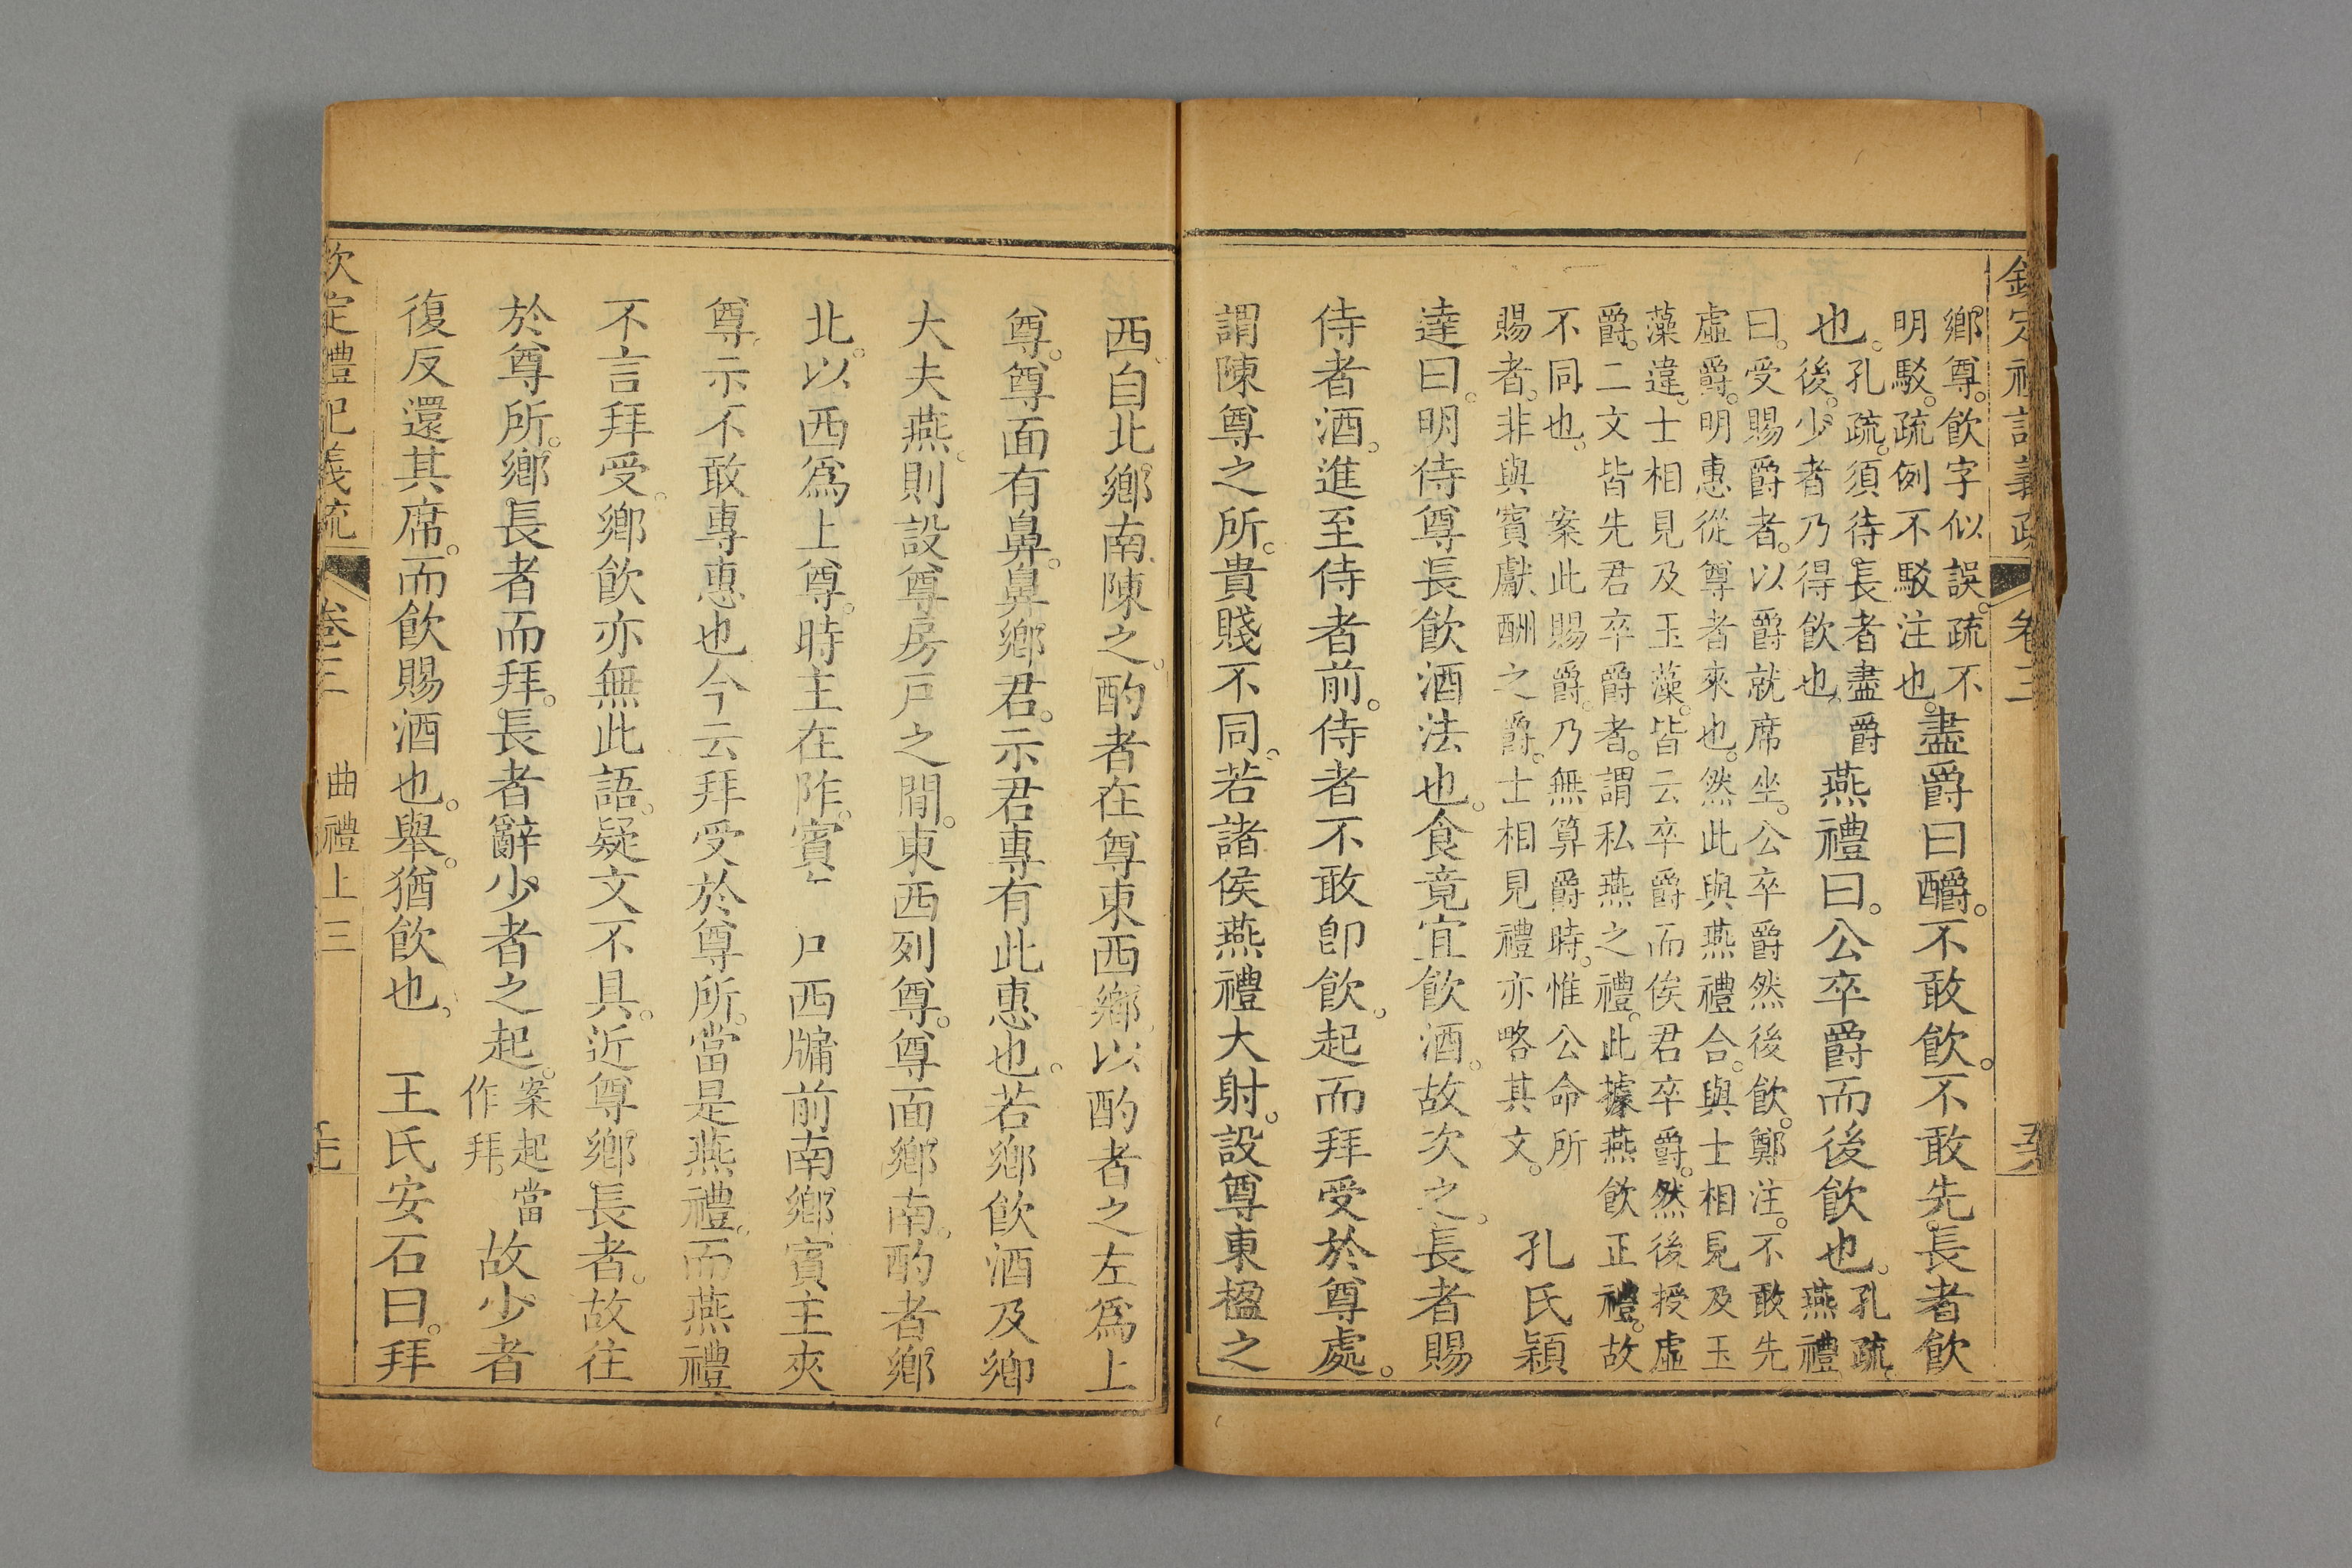 鄉尊。飲字似誤。疏不
明駁。疏例不駁注也。
盡爵曰釂。不敢飲。不敢先長者飲
也。
孔疏。須待長者盡爵
後。少者乃得飲也。
燕禮曰。公卒爵而後飲也。
孔疏。
燕禮
曰。受賜爵者。以爵就席坐。公卒爵然後飲。鄭注。不敢先
虛爵。明惠從尊者來也。然此與燕禮合。與士相見及玉
藻違。士相見及玉藻。皆云卒爵而俟君卒爵。然後授虛
爵。二文皆先君卒爵者。謂私燕之禮。此據燕飲正禮。故
不同也。 案此賜爵。乃無算爵時。惟公命所
賜者。非與賓獻酬之爵。士相見禮亦略其文。
孔氏穎
達曰。明侍尊長飲酒法也。食竟宜飲酒。故次之。長者賜
侍者酒。進至侍者前。侍者不敢卽飲。起而拜受於尊處。
謂陳尊之所。貴賤不同。若諸侯燕禮大射。設尊東楹之
西。自北鄉南陳之。酌者在尊東西鄉。以酌者之左爲上
尊。尊面有鼻。鼻鄉君。示君專有此惠也。若鄉飲酒及卿
大夫燕。則設尊房戶之閒。東西列尊。尊面鄉南。酌者鄉
北。以西爲上尊。時主在阼。賓 戶西牖前南鄉。賓主夾
尊。示不敢專惠也。今云拜受於尊所。當是燕禮。而燕禮
不言拜受。鄉飲亦無此語。疑文不具。近尊鄉長者。故往
於尊所。鄉長者而拜。長者辭少者之起。
案起當
作拜。
故少者
復反還其席。而飲賜酒也。舉。猶飲也。 王氏安石曰。拜
欽定禮記義疏 卷三 曲禮上三